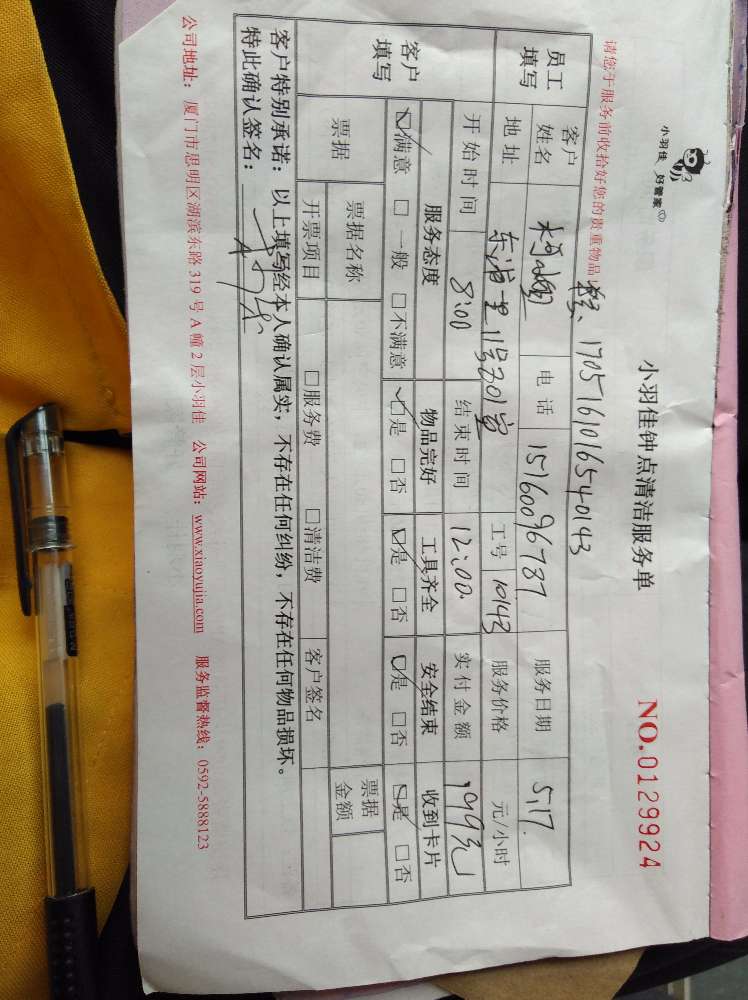 小羽佳 好管家
小羽佳钟点清洁服务单
NO.0129924
请您于服务前收拾好您的贵重物品
1705161016540143
员工填写
客户姓名 电话 15160096787 服务日期 5.17.
地址 东浦里11号301室 工号 10143 服务价格 元/小时
开始时间 8:00 结束时间 12:00 实付金额 199元
客户填写
服务态度 物品完好 工具齐全 安全结束 收到卡片
☑满意 □一般 □不满意 ☑是 □否 ☑是 □否 ☑是 □否 ☑是 □否
票据 票据名称 票据金额
开票项目 □服务费 □清洁费 客户签名
客户特别承诺：以上填写经本人确认属实，不存在任何纠纷，不存在任何物品损坏。
特此确认签名：
公司地址：厦门市思明区湖滨东路319号A幢2层小羽佳 公司网站：www.xiaoyujia.com 服务监督热线：0592-5888123